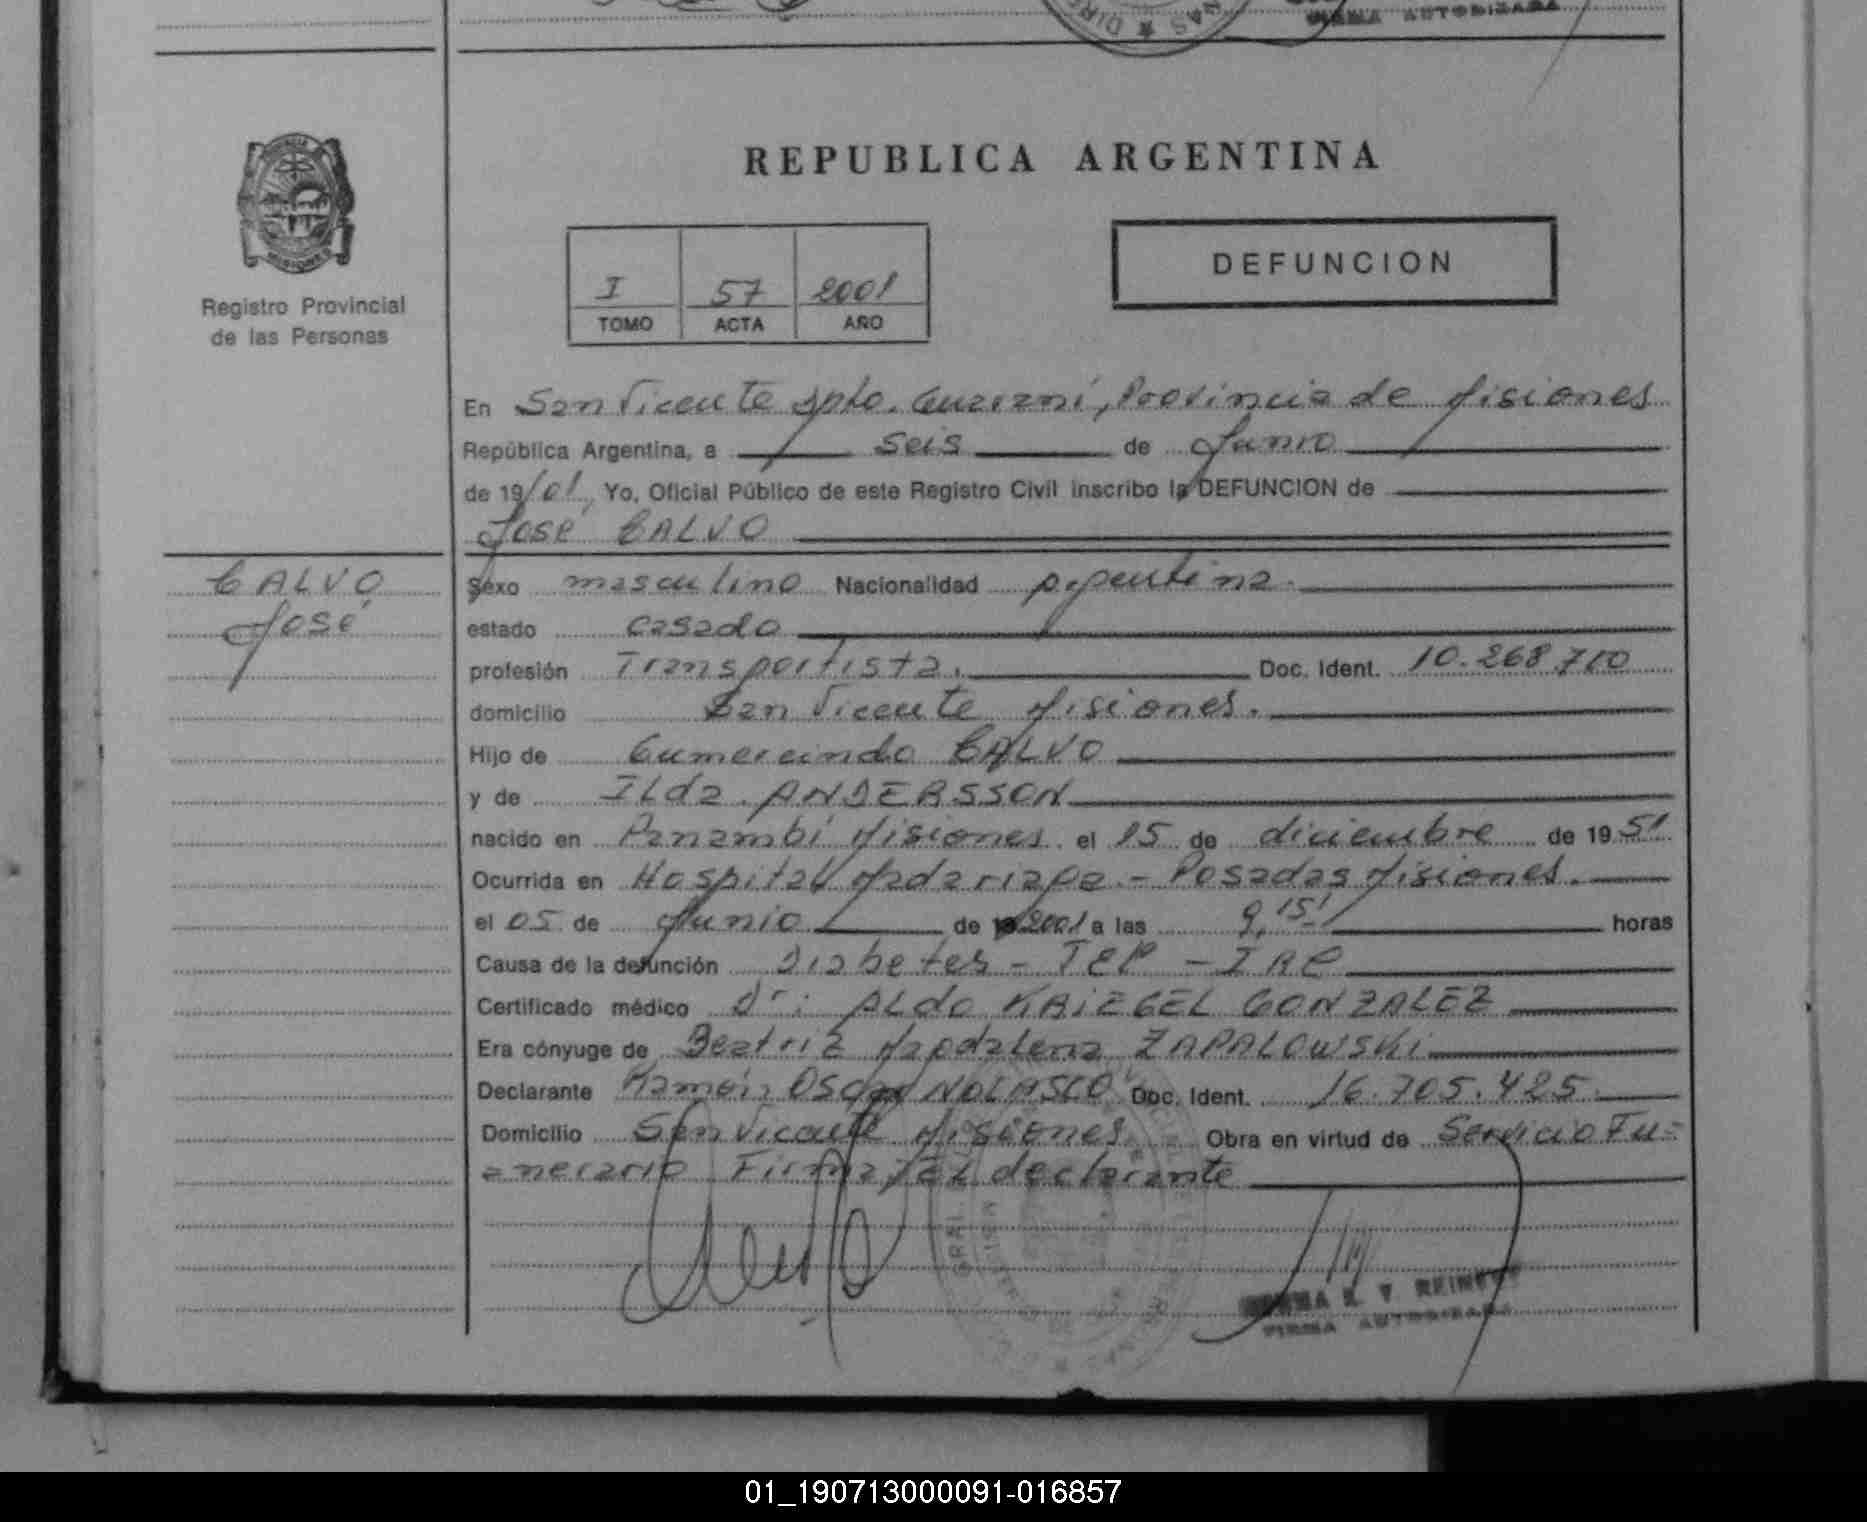 FIRMA AUTORIZADA
REPUBLICA ARGENTINA
Registro Provincial
de las Personas
I 57 2001
TOMO ACTA AÑO
DEFUNCION
En San Vicente Dpto. Guaraní, Provincia de Misiones
República Argentina, a seis de Junio
de 19/01, Yo, Oficial Público de este Registro Civil inscribo la DEFUNCION de
José CALVO
CALVO
José
Sexo masculino Nacionalidad argentina.
estado casado
profesión Transportista. Doc. Ident. 10.268.710
domicilio San Vicente Misiones.
Hijo de Gumercindo CALVO
y de ILda ANDERSSON
nacido en Panambí Misiones el 15 de diciembre de 1951
Ocurrida en Hospital Madariaga - Posadas Misiones.
el 05 de Junio de 2001 a las 9,15 horas
Causa de la defunción Diabetes - TEP - IRC
Certificado médico Dr: ALdo KRIEGEL GONZALEZ
Era cónyuge de Beatriz Magdalena ZAPALOWSKI
Declarante Ramón OSCAR NOLASCO Doc. Ident. 16.705.425
Domicilio San Vicente Misiones Obra en virtud de Servicio Fu=
=nerario Firma EL declarante
FIRMA AUTORIZADA
01_190713000091-016857